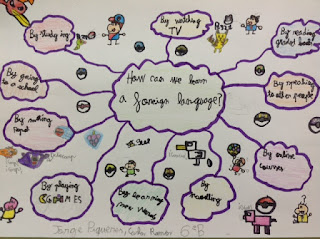 By studying
By watching
TV
By reading
graded books
By going
to a school
How can we learn
a foreign language?
By speaking
to other people
By online
courses
By playing
GAMES
By learning
new words
By
travelling
6ºB